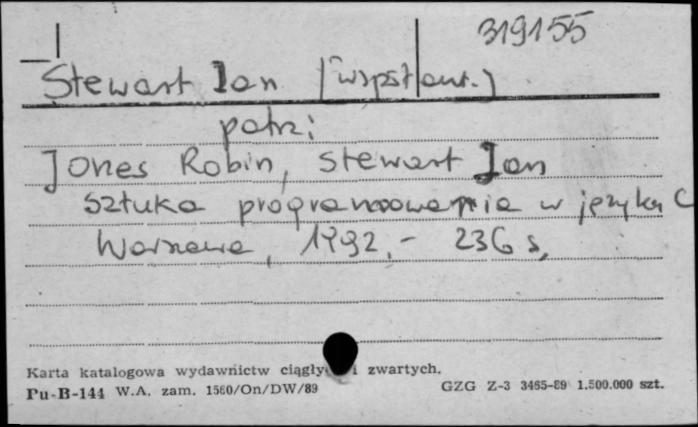 319155
Stewart Ian (współaut.)
patrz:
Jones Robin, Stewart Ian
Sztuka programowania w języku C
Warszawa, 1992,- 236 s,
Karta katalogowa wydawnictw ciągły i zwartych.
Pu-B-144 W.A. zam. 1560/On/DW/89 GZG Z-3 3465-89 1.500.000 szt.